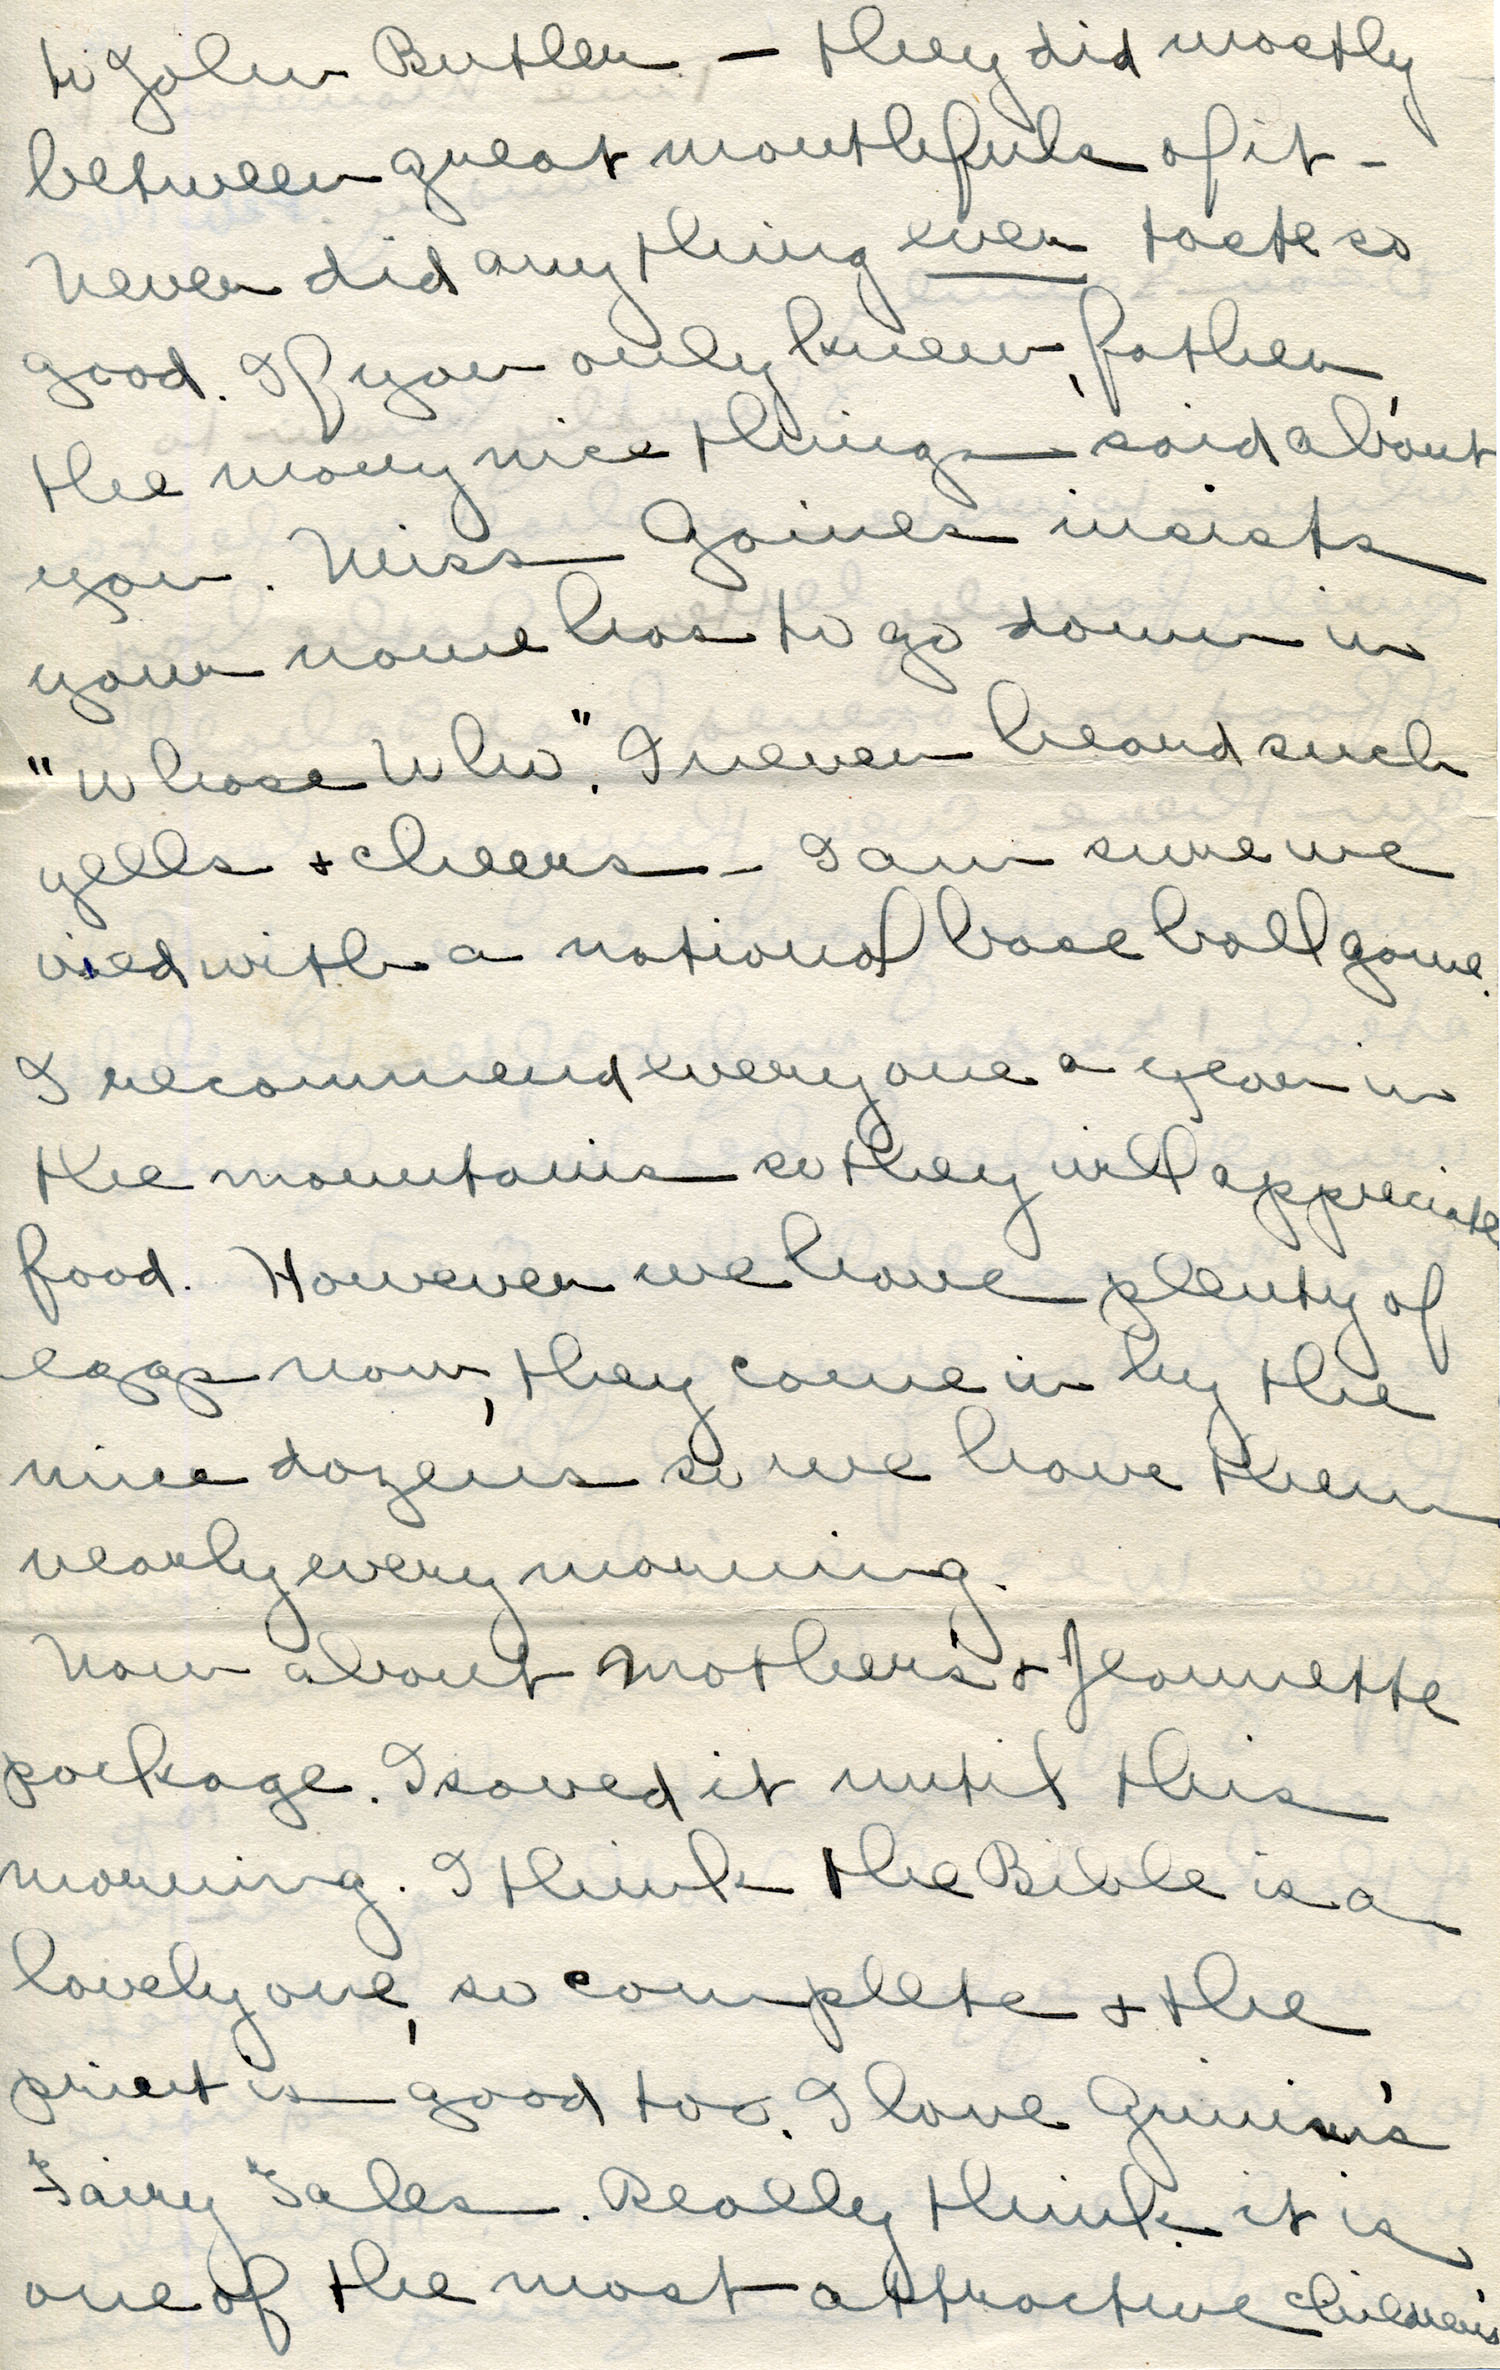 to John Butler - they did mostly
between great mouthfuls of it -
Never did any thing ever taste so
good. If you only knew, father,
the many nice things said about
you. Miss Gaines insists
your name has to go down in
"Whose Who". I never heard such
yells + cheers - I am sure we
vied with a national base ball game.
I recommend everyone a year in
the mountains so they will appreciate
food. However we have plenty of
eggs now, they come in by the
nice dozens so we have them
nearly every morning.
Now about Mother's + Jeannette
package. I saved it until this
morning. I think the Bible is a
lovely one, so complete + the
print is good too. I love Grimm's
Fairy Tales. Really think it is
one of the most attractive children's